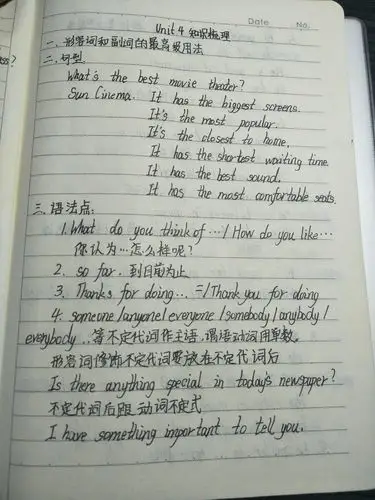 Date No.
Unit 4 知识梳理
一、形容词和副词的最高级用法
二、句型
What's the best movie theater?
Sun Cinema. It has the biggest screens.
It's the most popular.
It's the closest to home.
It has the shortest waiting time.
It has the best sound.
It has the most comfortable seats.
三、语法点:
1. What do you think of … / How do you like …
你认为…怎么样呢?
2. so far. 到目前为止
3. Thanks for doing... = / Thank you for doing
4. someone / anyone / everyone / somebody / anybody /
everybody .. 等不定代词作主语, 谓语动词用单数。
形容词修饰不定代词要放在不定代词后
Is there anything special in today's newspaper?
不定代词后跟动词不定式
I have something important to tell you.